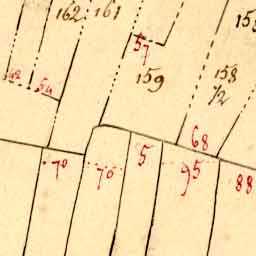 162 161
57
159
158
1/2
54
68
70
70
5
95
88